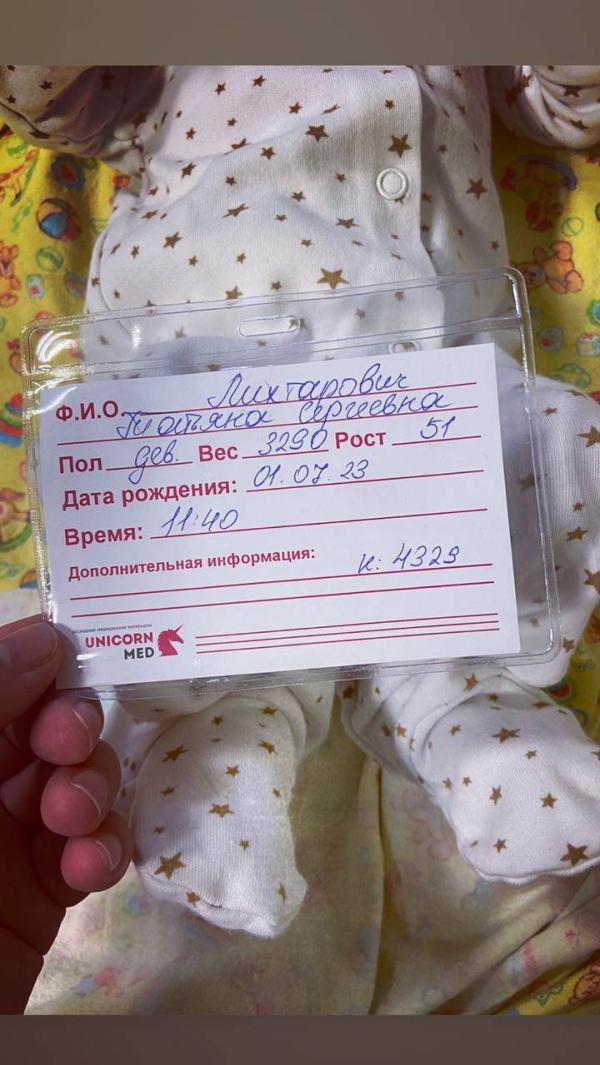 Ф.И.О. Лихтарович
Татьяна Сергеевна
Пол дев. Вес 3290 Рост 51
Дата рождения: 01.07.23
Время: 11:40
Дополнительная информация:
н: 4329
расходные медицинские материалы
UNICORN
MED